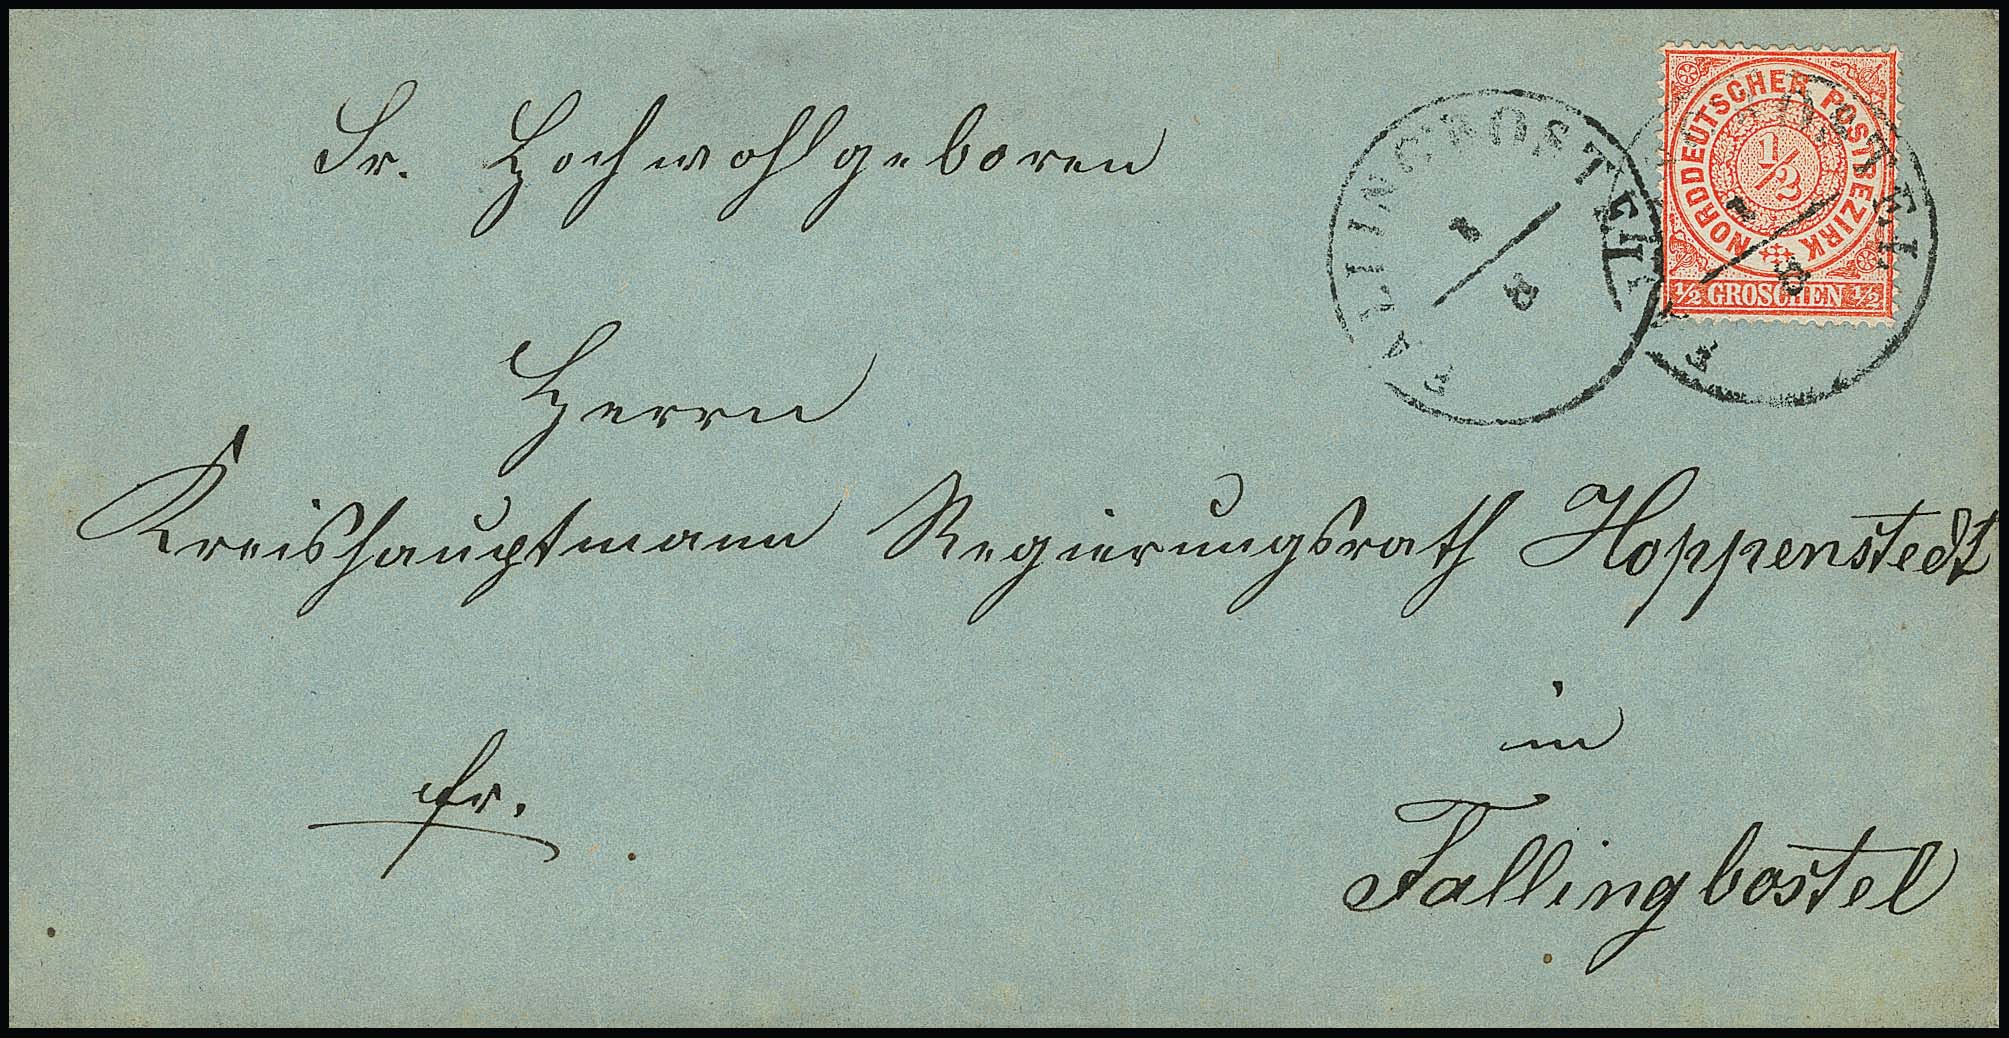 Sr. Hochwohlgeboren
Herrn
Kreishauptmann Regierungsrath Hoppenstedt
in
Fallingbostel
fr.
NORDDEUTSCHER POSTBEZIRK
1/2
1/2 GROSCHEN 1/2
FALLINGBOSTEL
1/8
FALLINGBOSTEL
1/8